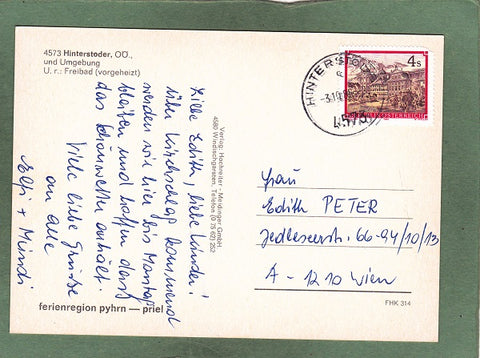 4573 Hinterstoder, OÖ.,
und Umgebung
U. r.: Freibad (vorgeheizt)
Liebe Edith, liebe Kinder!
über Kirchschlag kommend
werden wir hier bis Montag
bleiben und hoffen daß
das Schönwetter anhält.
Viele liebe Grüße
an alle
Elfi + Mundi
Verlag: Hochreiter - Meidinger GmbH
4580 Windischgarsten, Telefon (0 75 62) 252
HINTERSTODER
4573
4 S
REPUBLIK ÖSTERREICH
Frau
Edith PETER
Jedleseerstr. 66-94/10/13
A - 1210 Wien
ferienregion pyhrn — priel
FHK 314